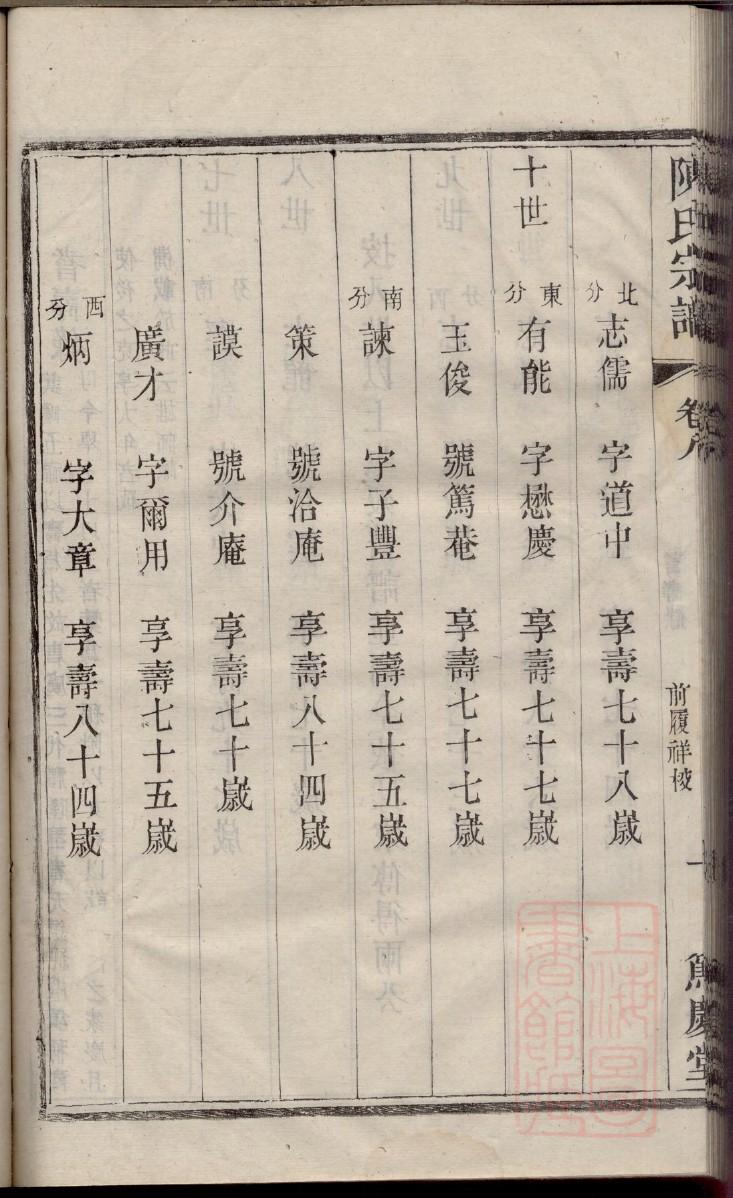 陳氏宗譜
卷八
前履祥校
十
篤慶堂
北分 志儒 字道中 享壽七十八歲
十世 東分 有能 字懋慶 享壽七十七歲
玉俊 號篤菴 享壽七十七歲
南分 諫 字子豐 享壽七十五歲
策 號洽庵 享壽八十四歲
謨 號介庵 享壽七十歲
廣才 字爾用 享壽七十五歲
西分 炳 字大章 享壽八十四歲
上海圖書館藏